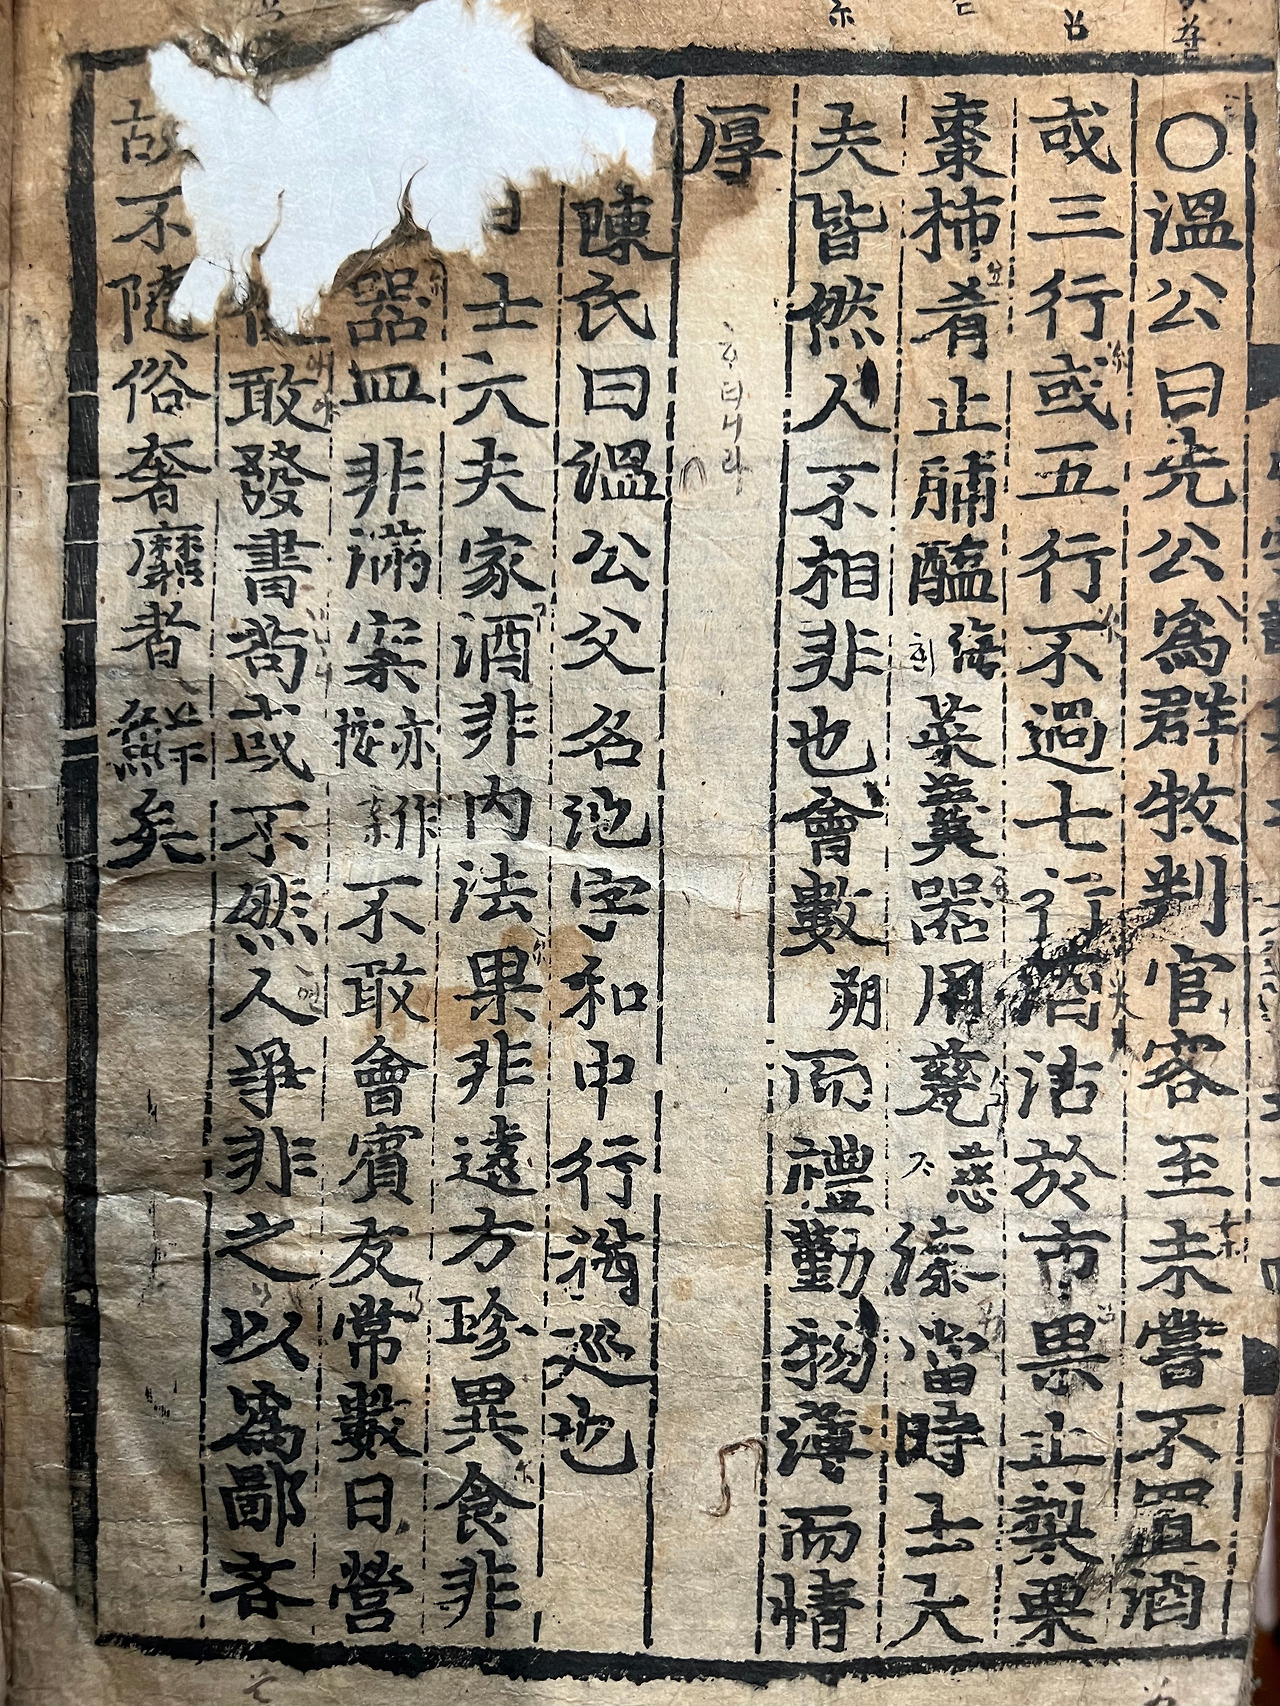 ○溫公曰先公爲群牧判官客至未嘗不置酒
或三行或五行不過七行酒沽於市果止梨栗
棗柿肴止脯醢海菜羹器用甆慈漆當時士大
夫皆然人不相非也會數朔而禮勤物薄而情
厚
陳氏曰溫公父名池字和中行猶巡也
日士大夫家酒非內法果非遠方珍異食非
器皿非滿案亦作按不敢會賓友常數日營
敢發書苟或不然人爭非之以爲鄙吝
故不隨俗奢靡者鮮矣